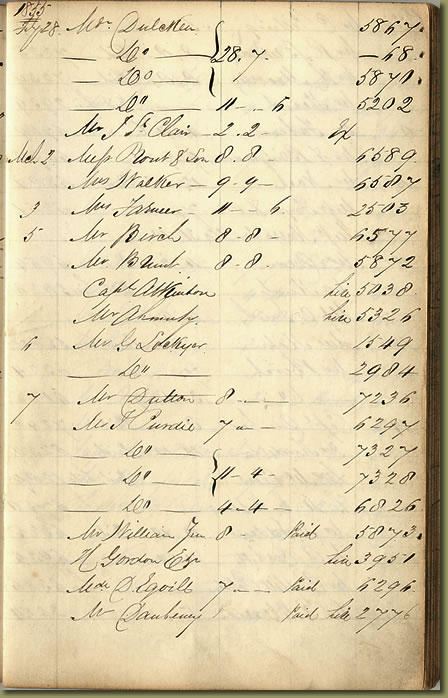 1855
Feby 28. Mr. Dulcken 5867.
— Do — 28.7. — 68.
— Do — 5871.
— Do — 11 - - 6 5202
Mr J St Clair — 2.2 Ex
Mch 2 Mess Prout & Son 8.8 - 6589.
Mrs Walker — 9-9 — 6587
3 Mrs Farmer 11 - - 6. 2503
5 Mr Birch 8-8 - 6577
Mr 8-8. 5872
Capt Atkinson hire 5038.
Mr hire 5326
6 Mr G Lockyer 1549
— Do — 2984
7 Mr Dutton 8 - — 7236
Mr J Purdie 7 - — 6297
— Do — 7327
— Do — 11-4 - 7328
— Do — 4-4 - 6826
Mr William Jun 8 Paid 5873.
H Gordon Esq hire 3951
D'Egville 7 - — Paid 6296
Mr Daubeney Paid hire 2776